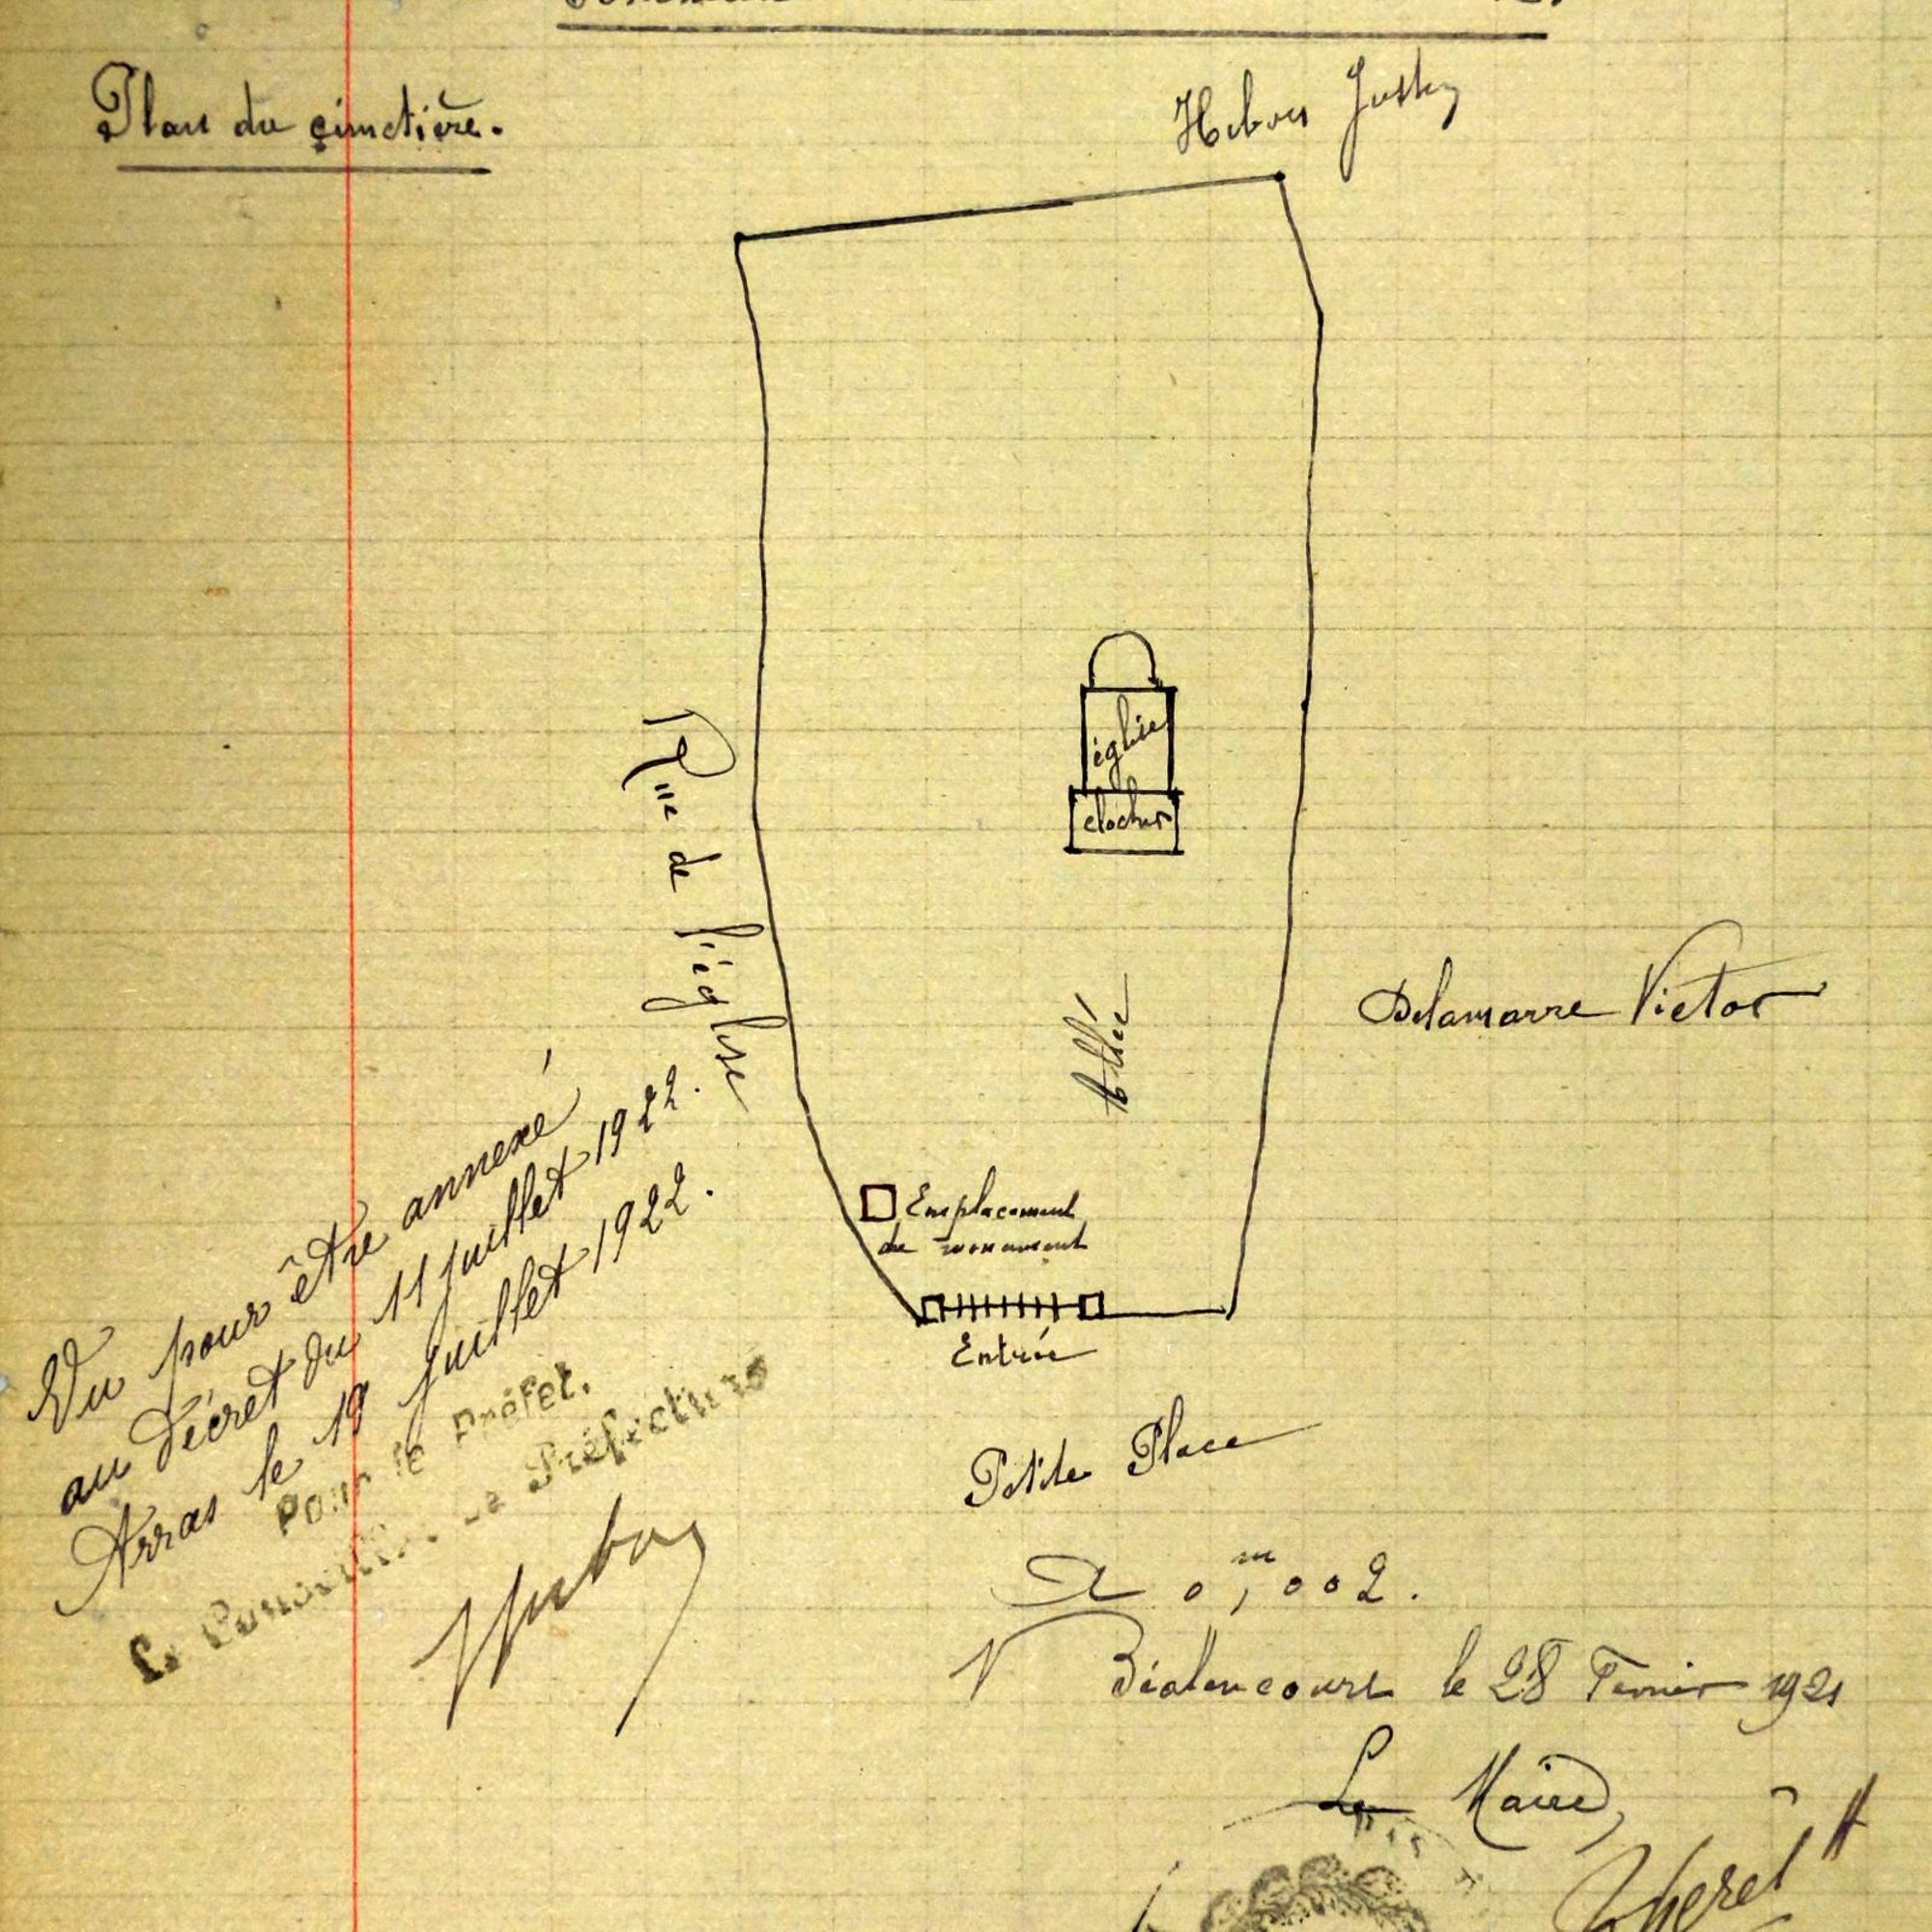 Plan du cimetière.
Justin
église
clocher
Rue de l'église
Delamarre Victor
Allée
Emplacement
du monument
Entrée
Petite Place
Vu pour être annexé
au Décret du 11 juillet 1922.
Arras le 19 juillet 1922.
Pour le Préfet.
Le Conseiller de Préfecture
A 0,m002.
Béalencourt le 28 Février 1921
Le Maire,